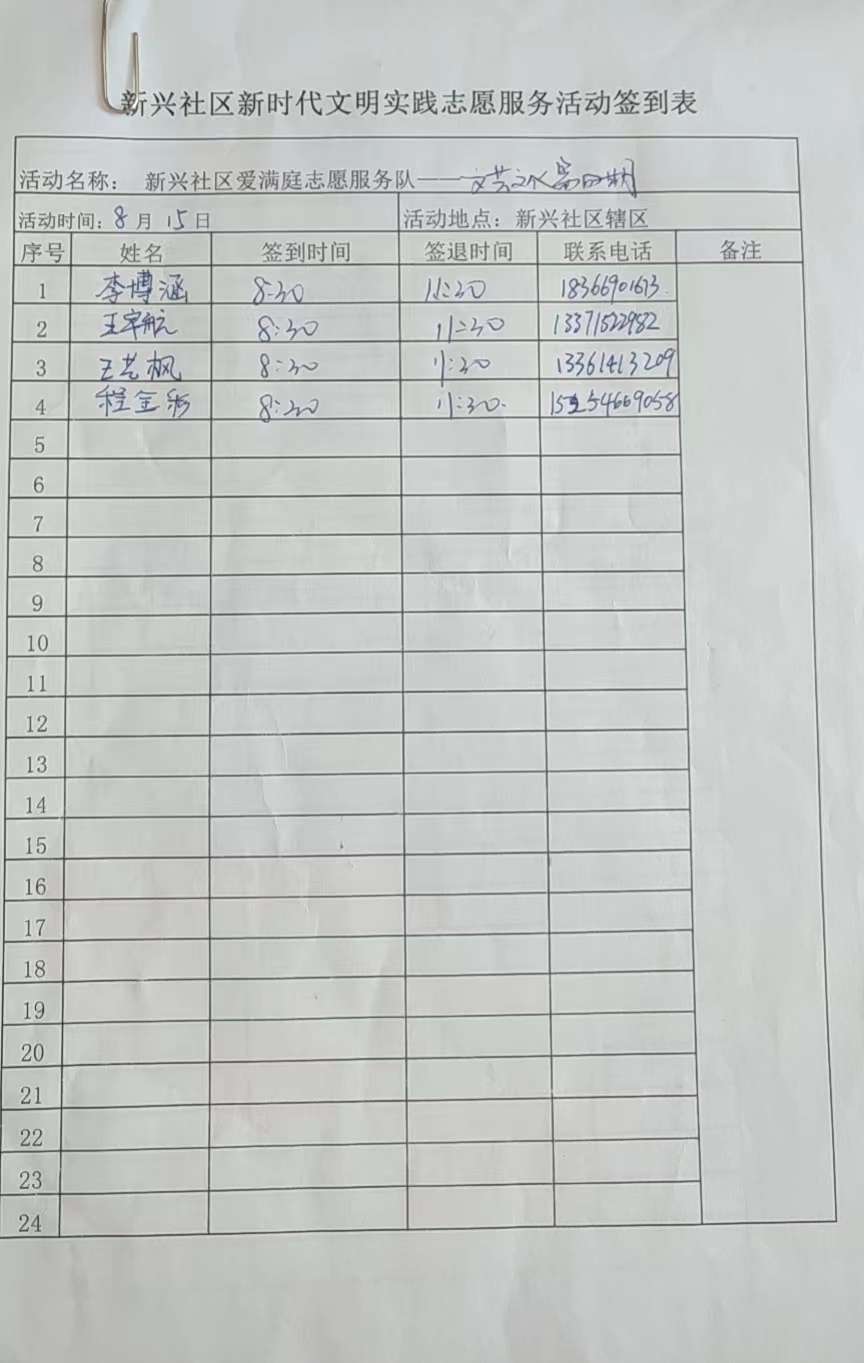 新兴社区新时代文明实践志愿服务活动签到表
活动名称： 新兴社区爱满庭志愿服务队——
活动时间：8月 15日 活动地点：新兴社区辖区
序号 姓名 签到时间 签退时间 联系电话 备注
1 李博涵 8:30 11:30 18366901673
2 王宇航 8:30 11:30 13371522982
3 王艺枫 8:30 11:30 13361413209
4 程金 8:30 11:30
5
6
7
8
9
10
11
12
13
14
15
16
17
18
19
20
21
22
23
24